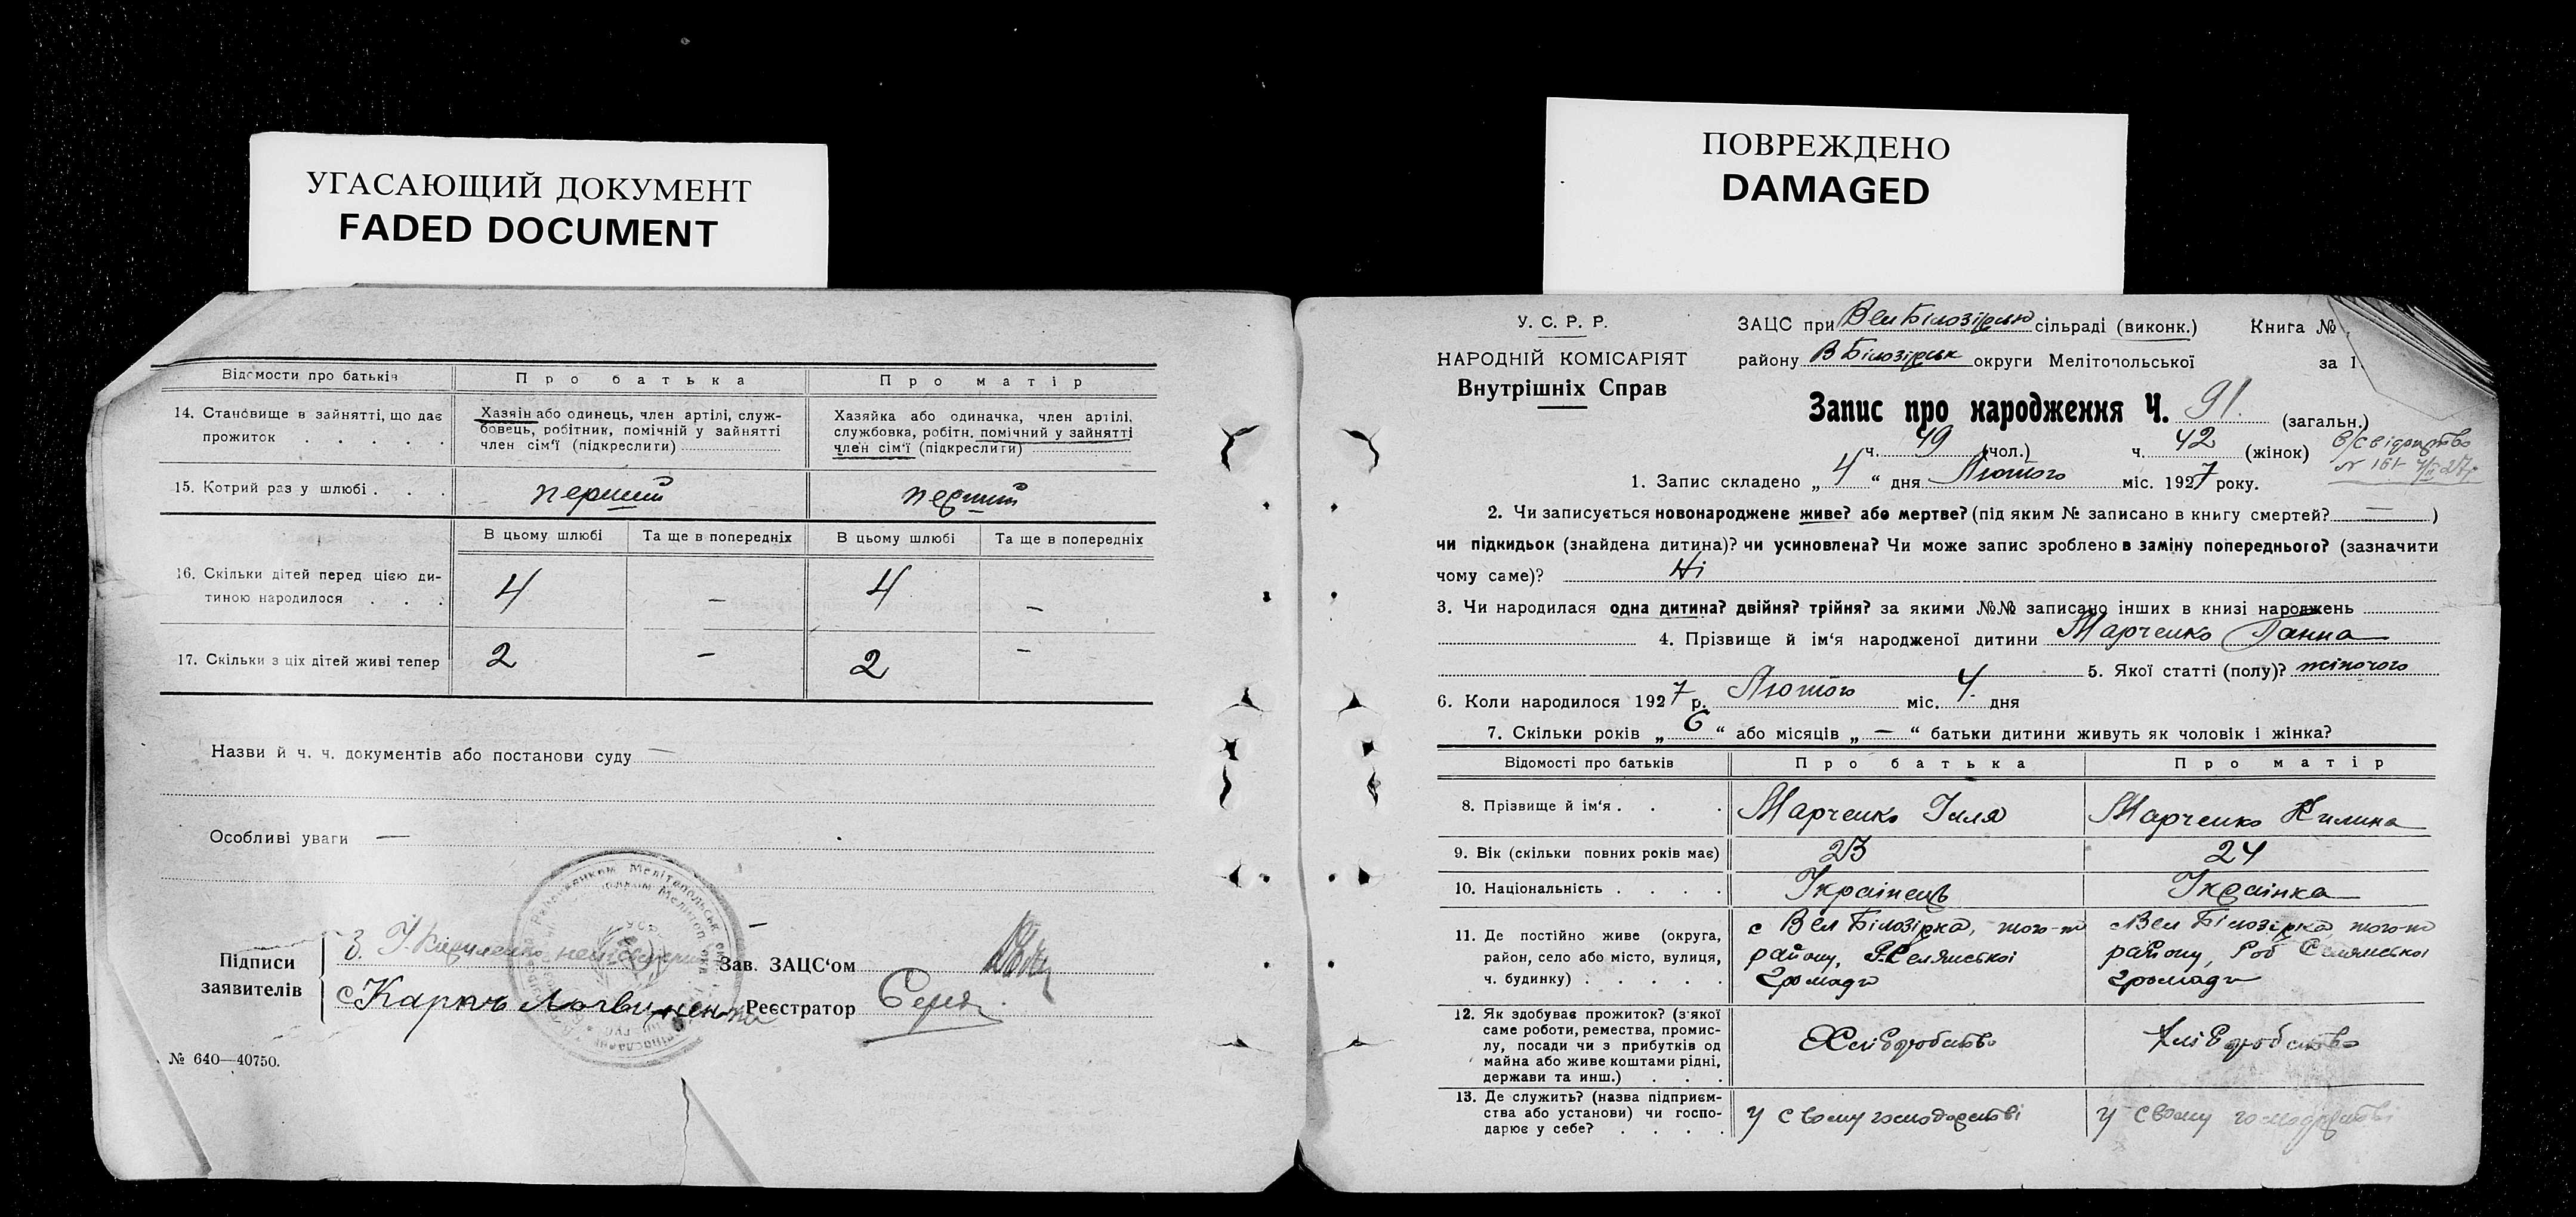 УГАСАЮЩИЙ ДОКУМЕНТ
FADED DOCUMENT
Відомости про батьків
Про батька
Про матір
14. Становище в зайнятті, що дає прожиток . . . . .
Хазяін або одинець, член артілі, служ-
бовець, робітник, помічній у зайнятті
член сім'ї (підкреслити)
Хазяйка або одиначка, член артілі,
службовка, робітн. помічний у зайнятті
член сім'ї (підкреслити)
15. Котрий раз у шлюбі . . .
перший
перший
В цьому шлюбі
Та ще в попередніх
В цьому шлюбі
Та ще в попередніх
16. Скільки дітей перед цією ди-
тиною народилося . . .
4 — 4 —
17. Скільки з ціх дітей живі тепер
2 — 2 —
Назви й ч. ч. документів або постанови суду —
Особливі уваги —
Підписи
заявителів
З.
Зав. ЗАЦС'ом
Карпъ
Реєстратор
№ 640—40750.
ПОВРЕЖДЕНО
DAMAGED
У. С. Р. Р.
НАРОДНІЙ КОМІСАРІЯТ
Внутрішніх Справ
ЗАЦС при Вел Білозірськ сільраді (виконк.)
Книга №
району В Білозірськ округи Мелітопольської
за 1
Запис про народження Ч. 91. (загальн.)
ч. 49 (чол.) ч. 42 (жінок)
№ 161
1. Запис складено „ 4 “ дня Лютого міс. 1927 року.
2. Чи записується новонароджене живе? або мертве? (під яким № записано в книгу смертей? — )
чи підкидьок (знайдена дитина)? чи усиновлена? Чи може запис зроблено в заміну попереднього? (зазначити
чому саме)? Ні
3. Чи народилася одна дитина? двійня? трійня? за якими №№ записано інших в книзі народжень
4. Прізвище й ім'я народженої дитини Марченко Ганна
5. Якої статті (полу)? жіночого
6. Коли народилося 1927 р. Лютого міс. 4 дня
7. Скільки років „ 6 “ або місяців „ — “ батьки дитини живуть як чоловік і жінка?
Відомості про батьків
Про батька
Про матір
8. Прізвище й ім'я . . .
Марченко Ілля
Марченко Килина
9. Вік (скільки повних років має)
23
24
10. Національність . . . .
Українець
Українка
11. Де постійно живе (округа,
район, село або місто, вулиця,
ч. будинку) . . . . .
с Вел Білозірка, того-ж
району, Селянської
Громади
с Вел Білозірка того-ж
району, Роб Селянської
Громади
12. Як здобуває прожиток? (з'якої
саме роботи, ремества, промис-
лу, посади чи з прибутків од
майна або живе коштами рідні,
держави та инш.) . . .
Хліборобство
Хліборобство
13. Де служить? (назва підприєм-
ства або установи) чи госпо-
дарює у себе? . . . .
у своєму господарстві
у своєму господарстві